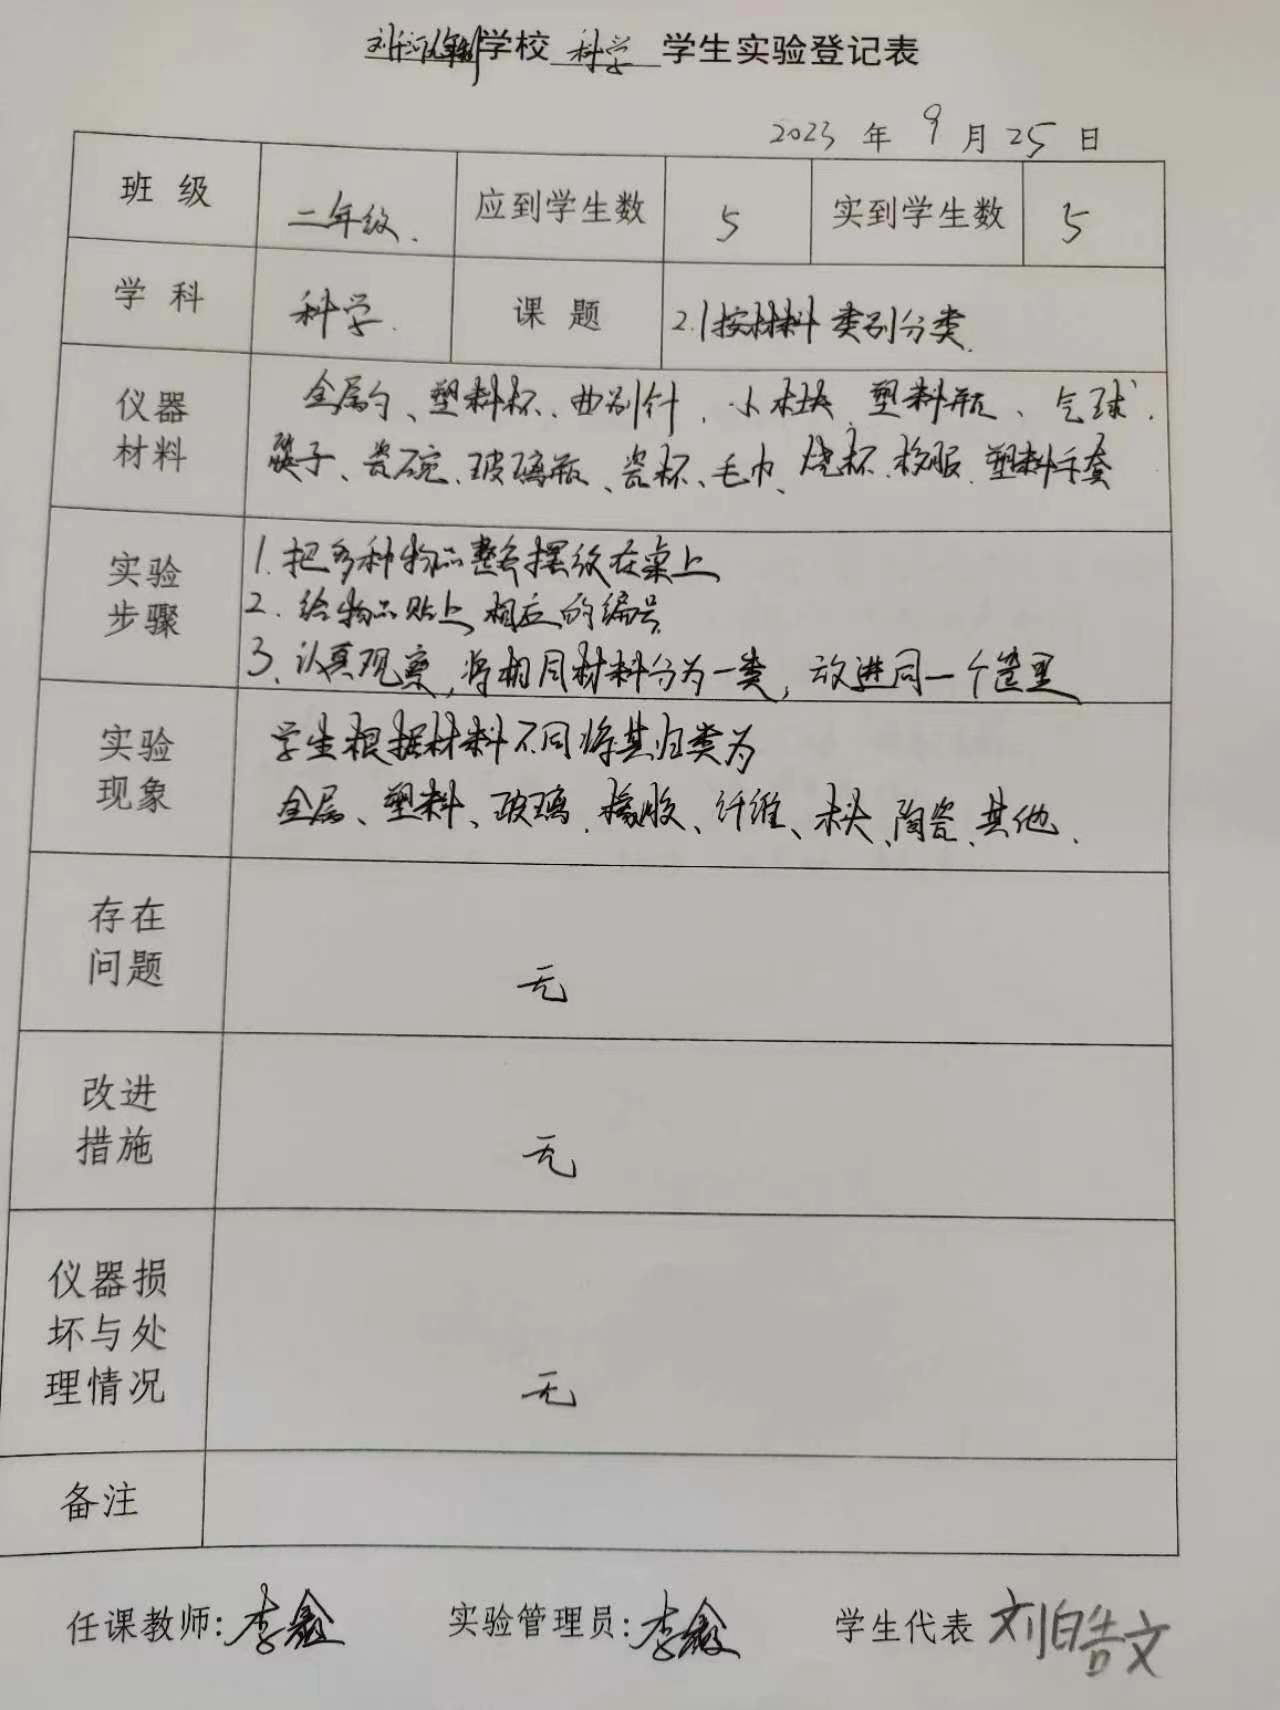 学校 科学 学生实验登记表
2023 年 9 月 25 日
班 级 二年级. 应到学生数 5 实到学生数 5
学 科 科学. 课 题 2.1按材料类别分类.
仪器 金属勺、塑料杯、曲别针、小木块、塑料瓶、气球.
材料 筷子、瓷碗、玻璃瓶、瓷杯、毛巾、烧杯、校服、塑料手套
实验 1.把多种物品整齐摆放在桌上
步骤 2.给物品贴上相应的编号
3.认真观察,将相同材料分为一类,放进同一个筐里
实验 学生根据材料不同将其归类为
现象 金属、塑料、玻璃、橡胶、纤维、木头、陶瓷、其他.
存在
问题 无
改进
措施 无
仪器损
坏与处
理情况 无
备注
任课教师:李鑫 实验管理员:李鑫 学生代表 刘皓文